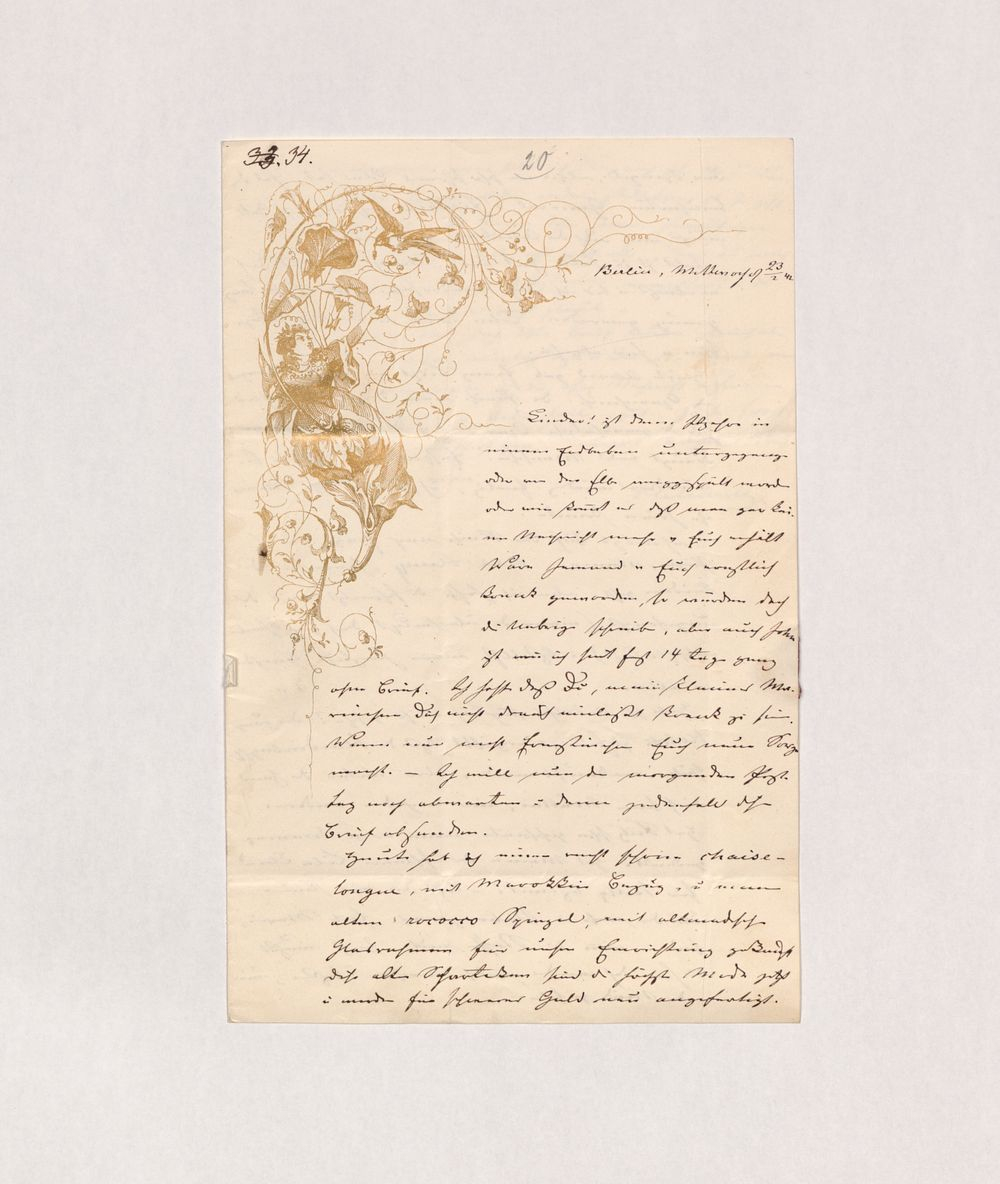 33. 34.
20
Berlin, Mittwoch d 23/2 42
Kinder! ist denn Itzehoe in
einem Erdbeben untergegange
oder von der Elbe weggespült word
oder wie kommt es daß man gar kei-
ne Nachricht mehr v Euch erhält
Wäre Jemand v Euch ernstlich
krank geworden, so würden doch
die Uebrige schreibe, aber auch John
ist wie ich seit fast 14 Tage ganz
ohne Brief. Ich hoffe daß Du, mein kleines Ma-
riechen Dich nicht darauf einläßt krank zu sein.
Wenn nur nicht Ernstinchen Euch neue Sorge
macht. – Ich will nun den morgenden Post-
tag noch abwarten u dann jedenfalls diese
Brief absenden.
Heute hab ich einen recht schönen chaise-
longue, mit Marokkin Bezug, u einen
alten rococco Spiegel, mit altmodisch
Glasrahmen für unsre Einrichtung gekauft
diese alte Scharteken sind die höchste Mode jetzt
u werden für schweres Geld neu angefertigt.